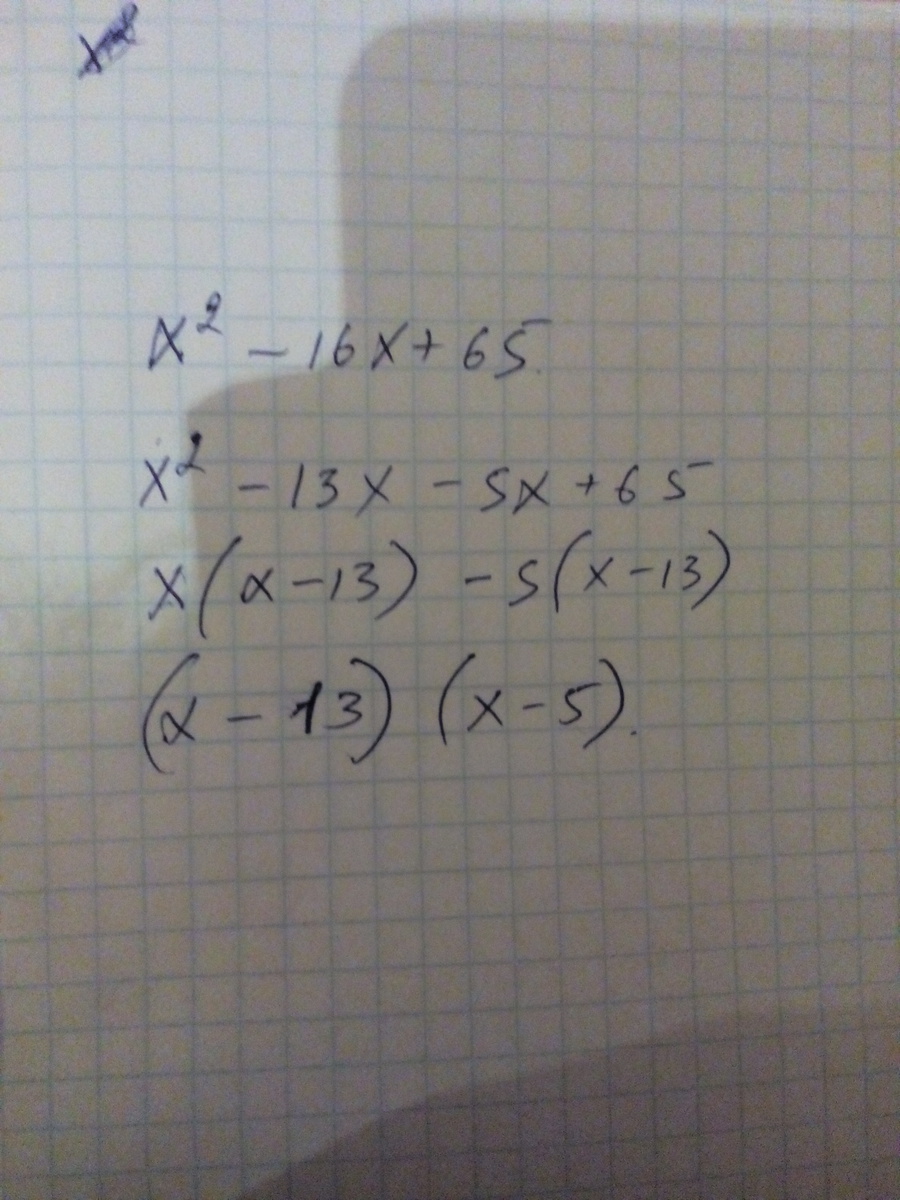 x² - 16x + 65
x² - 13x - 5x + 65
x(x - 13) - 5(x - 13)
(x - 13) (x - 5).